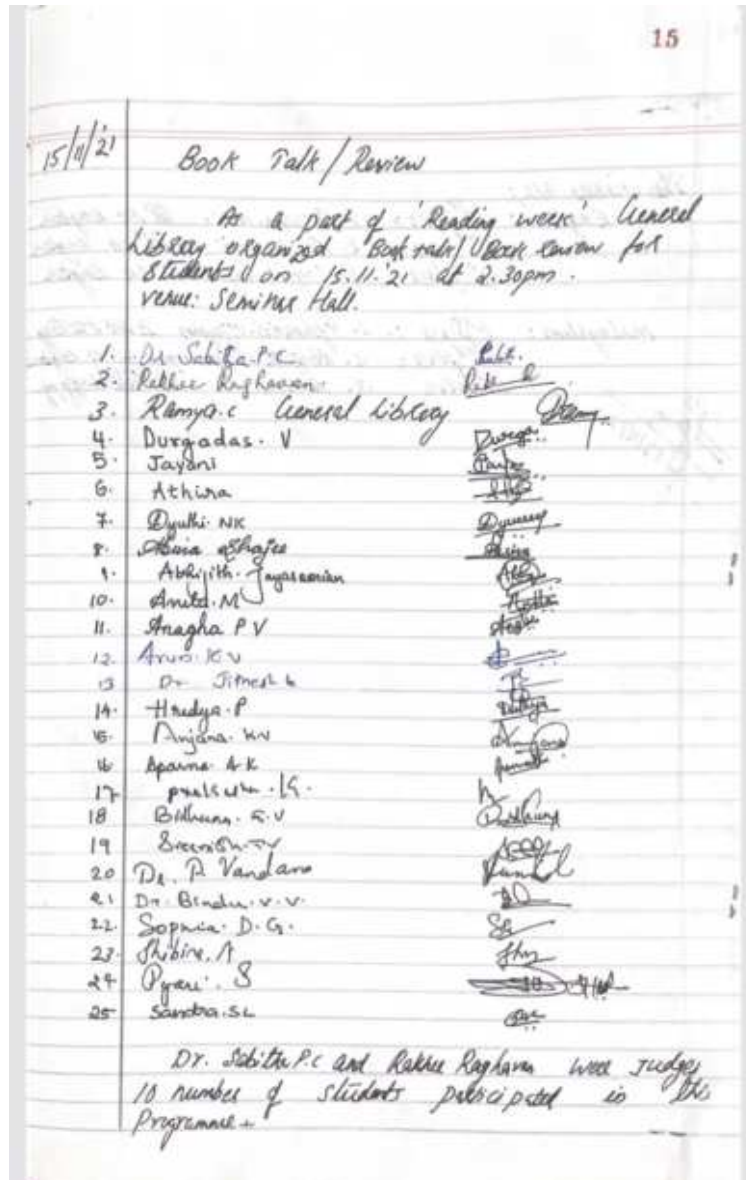 15
15/11/'21
Book Talk / Review
As a part of 'Reading week' General
Library organized Book talk / Book review for
Students on 15.11.'21 at 2.30pm.
venue: Seminar Hall.
1. Dr. Sabitha P.C
2. Rakhee Raghavan
3. Ramya.c General Library
4. Durgadas. V
5. Jayani
6. Athira
7. Dyuthi NK
8.
9. Abhijith.
10. Anita. M
11. Anagha P V
12. Arun. K V
13 Dr.
14. Hredya. P
15. Anjana. KV
16 Aparna A K
17
18
19
20 Dr. P Vandana
21 Dr. Bindu. V. V.
22. D. G.
23. Shibin. A
24 Pyari. S
25 Sandra. SL
Dr. Sabitha P.C and Rakhee Raghavan were Judges
10 number of students participated in this
Programme.